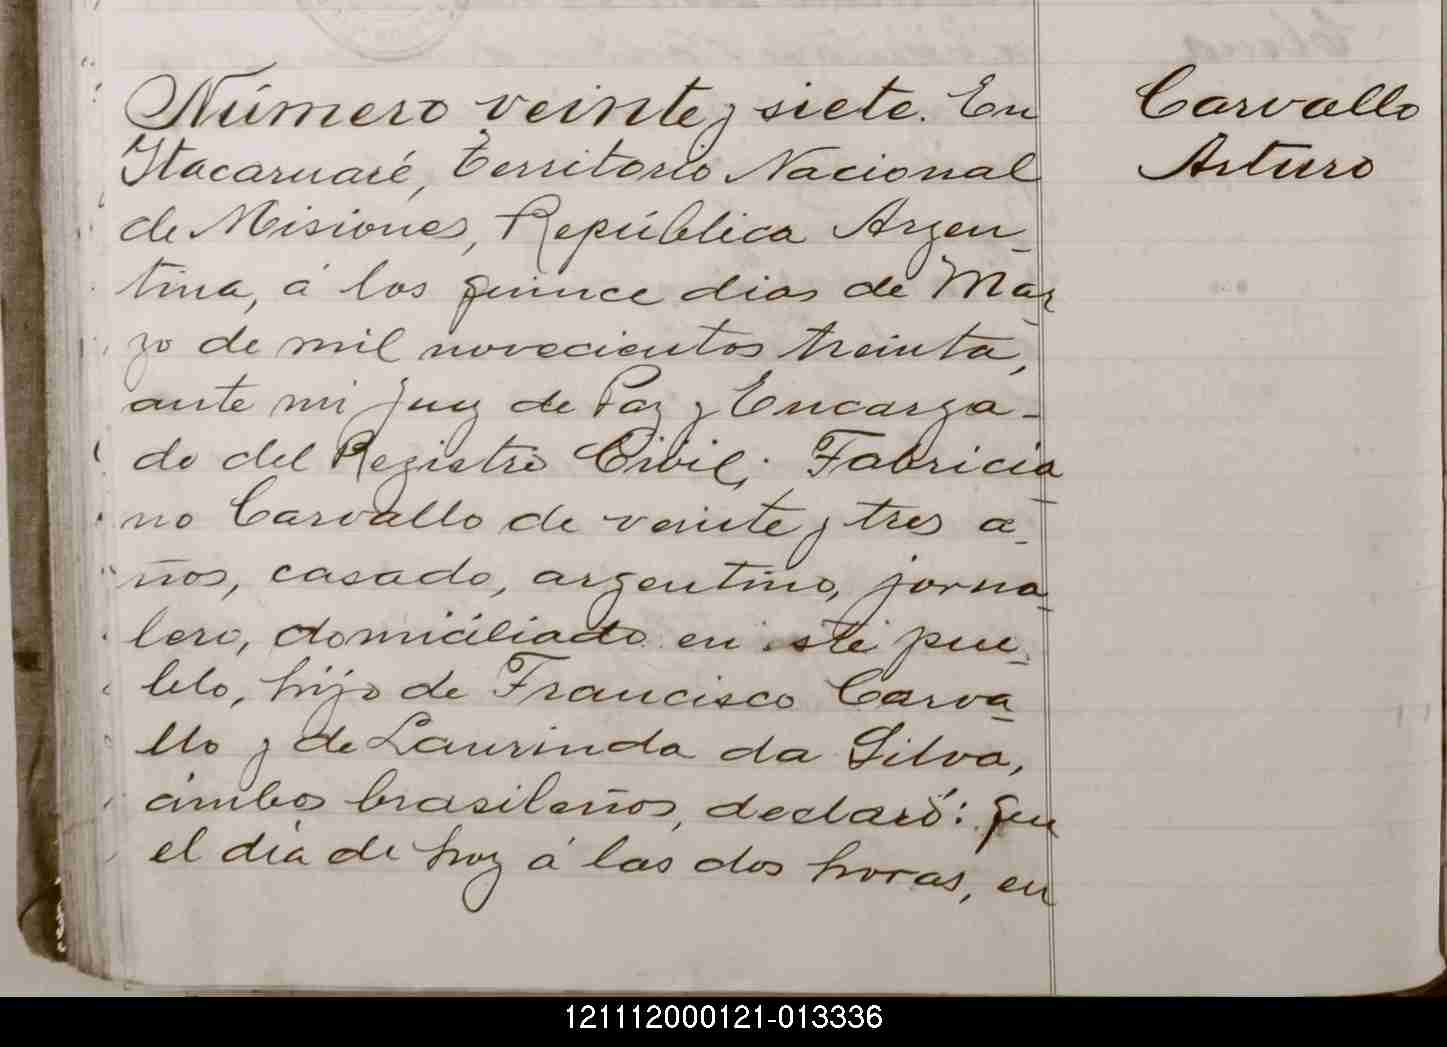 Número veinte y siete. En
Itacaruaré, Territorio Nacional
de Misiones, República Argen-
tina, á los quince dias de Mar-
zo de mil novecientos treinta,
ante mi Juez de Paz y Encarga-
do del Registro Civil; Fabricia-
no Carvallo de veinte y tres a-
ños, casado, argentino, jorna-
lero, domiciliado en este pue-
blo, hijo de Francisco Carva-
llo y de Laurinda da Silva,
ambos brasileños, declaró: que
el día de hoy á las dos horas, en
Carvallo
Arturo
121112000121-013336